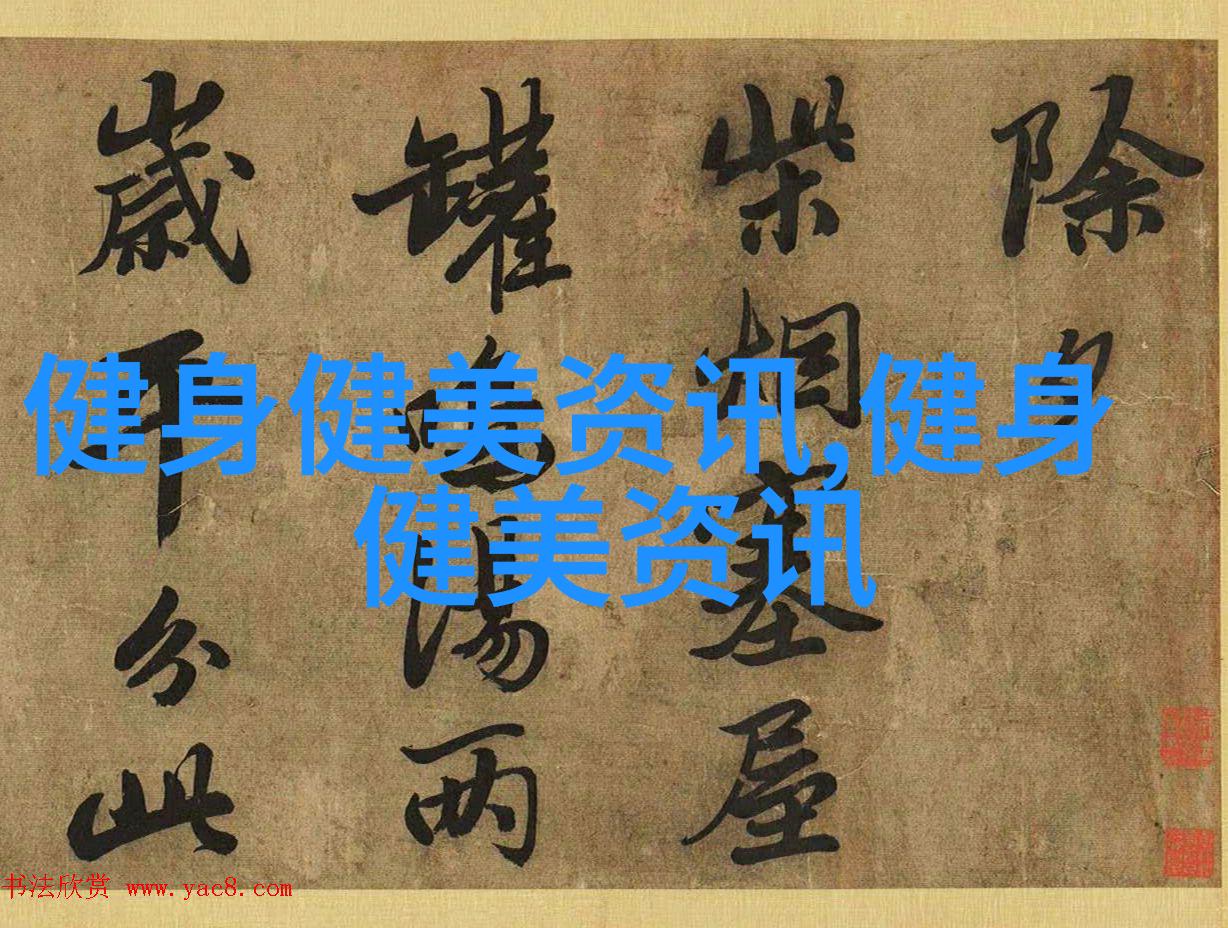 除夕
柴烟塞屋
罐鳴湯两
歲平分此
健身健美资讯,健身
健美资讯
书法欣赏 www.yac8.com